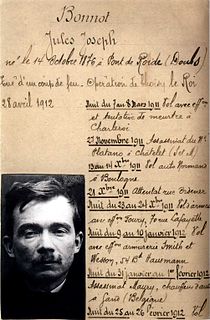 Bonnot
Jules Joseph
né le 14 Octobre 1876 à Pont de Roide (Doubs)
Tué d'un coup de feu - Opération de Choisy le Roi
28 avril 1912
Nuit du 7 au 8 Mars 1911 Vol avec eff°n
et tentative de meurtre à
Charleroi
27 Novembre 1911 Assassinat du N°
Platano à Châtelet (Set M)
13 au 14 Xbre 1911 Vol auto Normand
à Boulogne
21 Xbre 1911 Attentat rue Ordener
Nuit du 23 au 24 Xbre 1911 Vol à armes
eff°n Foury, 70 rue Lafayette
Nuit du 9 au 10 janvier 1912 Vol
eff°n armurerie Smith et
Wesson, 54 Bd Haussmann
Nuit du 31 janvier au 1er février 1912
Assassinat chauffeur
à (Belgique)
Nuit du 25 au 26 février 1912 Vol